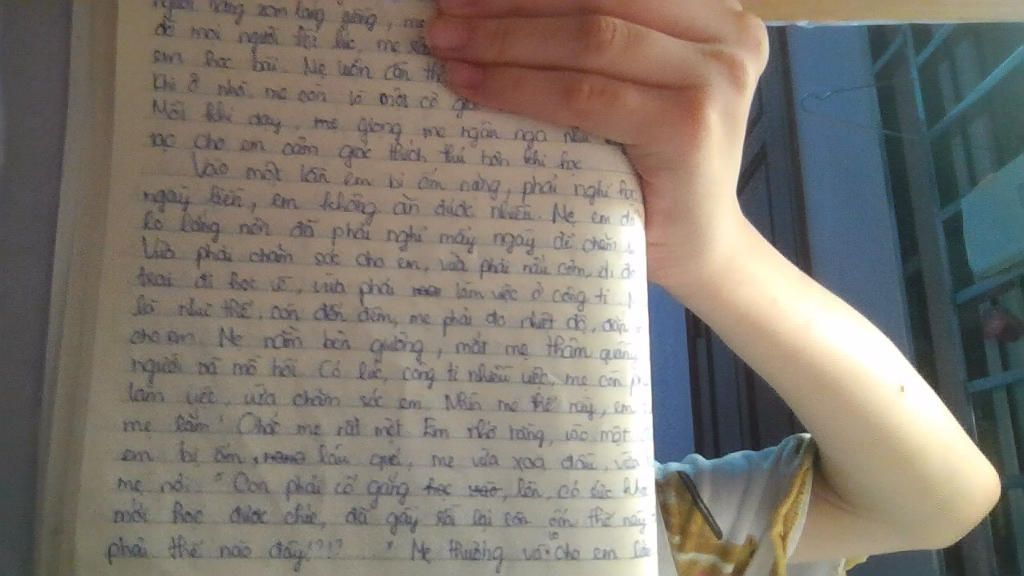 người hàng xóm láng giềng, mẹ
đỡ mọi người mẹ
em học bài. Mẹ luôn cẩn
Khi ở nhà, mẹ còn là một cô
Mỗi khi dạy, mẹ giọng mẹ ngân nga
cho em cảm giác thích thú hơn khi học
Vào một lần em bị ốm nặng, phải nghỉ
ngay liền, em không ăn được nhiều. Mẹ em
lo lắng nên đã phải nghỉ mấy ngày để chăm
Vừa phải chăm sóc cho em, vừa phải nấu cơm, đi
trai đi học về, vừa phải làm việc ở công ti.
là như thế, còn đến đêm, mẹ phải đo nhiệt độ,
cho em. Mẹ nằm bên giường, mắt mẹ thâm quầng
người vã mồ hôi. Có lúc, công ti nhiều việc, mẹ còn
làm việc, vừa chăm sóc em. Nhìn mẹ thế này, em
mẹ lắm! Chắc mẹ rất mệt. Em nhớ rằng, vào một
em bị ốm, lâu quá, mẹ vừa xoa đầu, vừa
mẹ nói: "Con phải cố gắng lên, có sức
mới học được chứ, đã gầy rồi lại còn ốm thế này
phải thế nào đây!?!? " Mẹ thường vỗ về cho em